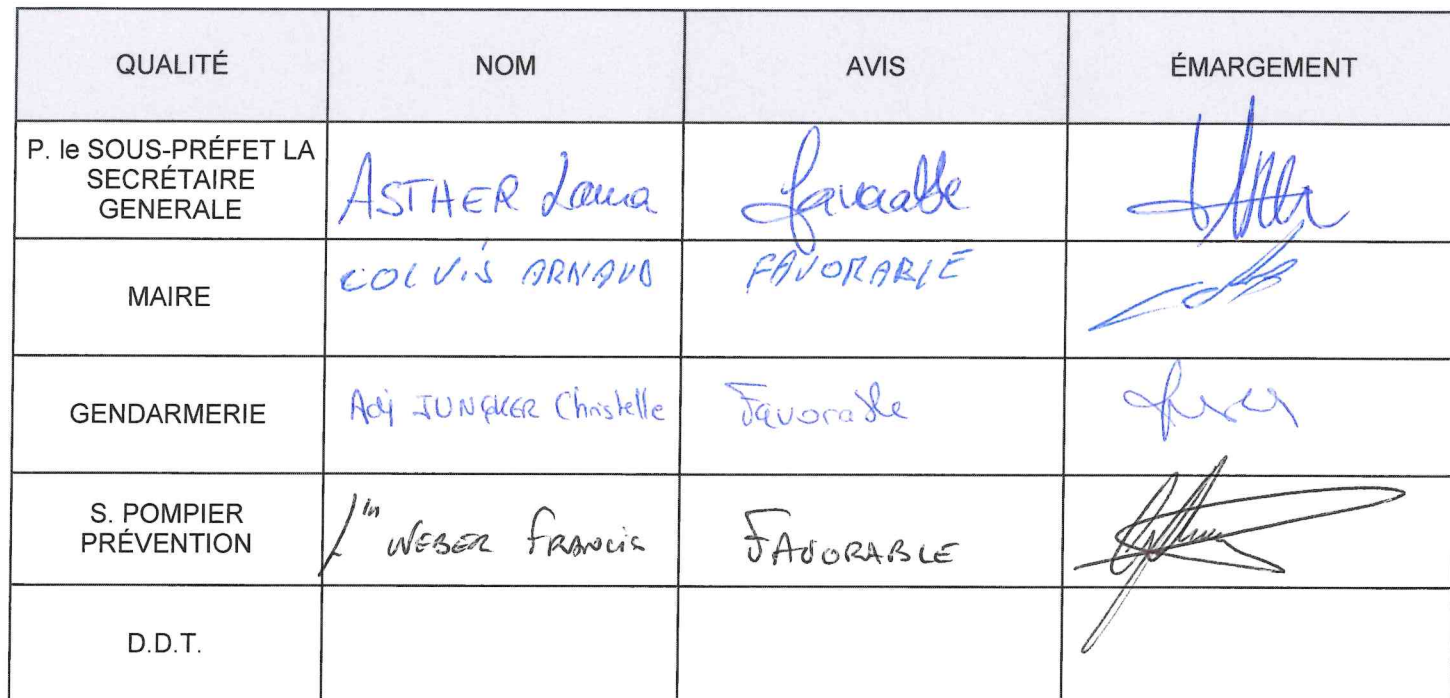 QUALITÉ NOM AVIS ÉMARGEMENT
P. le SOUS-PRÉFET LA
SECRÉTAIRE
GENERALE
ASTHER Laura favorable
MAIRE
COLVIS ARNAUD FAVORABLE
GENDARMERIE
Adj JUNCKER Christelle Favorable
S. POMPIER
PRÉVENTION
WEBER Francis FAVORABLE
D.D.T.